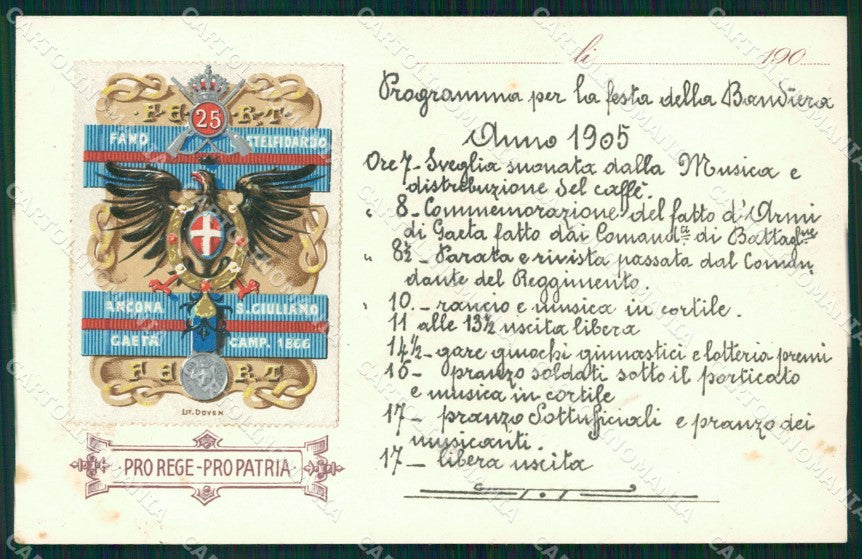 li 190
F E R T
25
FANO CTELFIDARDO
ANCONA S. GIULIANO
GAETA CAMP. 1866
F E R T
LIT. DOYEN
PRO REGE - PRO PATRIA
Programma per la festa della Bandiera
Anno 1905
Ore 7 - Sveglia suonata dalla Musica e
distribuzione del caffè.
" 8 - Commemorazione del fatto d'Armi
di Gaeta fatto dai Comandti di Battaglne
" 8½ - Parata e rivista passata dal Coman-
dante del Reggimento.
" 10. - rancio e musica in cortile.
11 alle 13½ uscita libera
14½ - gare giuochi ginnastici e lotteria premi
15 - pranzo soldati sotto il porticato
e musica in cortile
17 - pranzo Sottufficiali e pranzo dei
musicanti.
17 - libera uscita
CARTOLINOMANIA